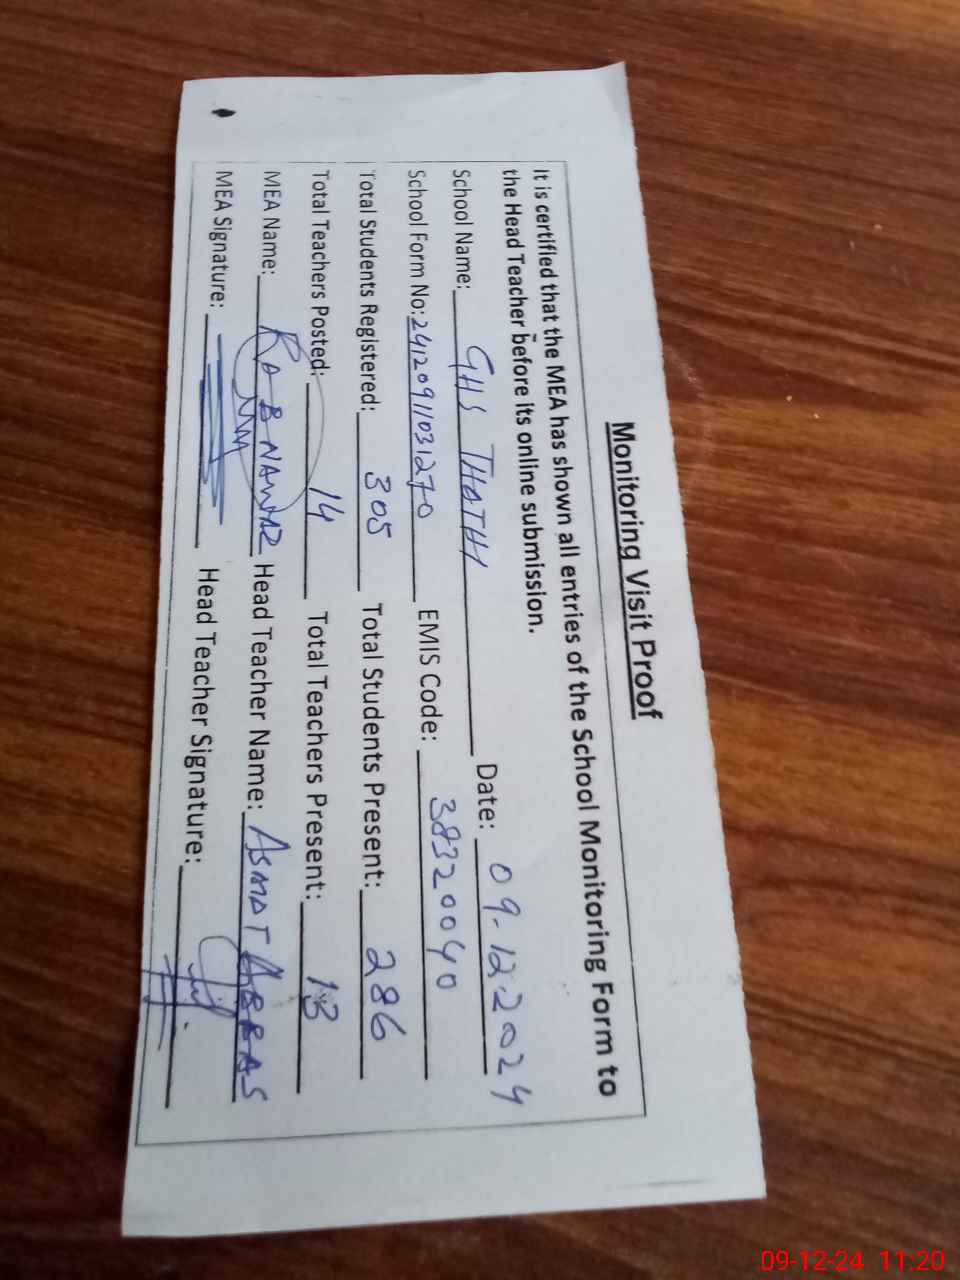 Monitoring Visit Proof
It is certified that the MEA has shown all entries of the School Monitoring Form to
the Head Teacher before its online submission.
School Name: GHS THATHI Date: 09-12-2024
School Form No: 24120911031270 EMIS Code: 38320040
Total Students Registered: 305 Total Students Present: 286
Total Teachers Posted: 14 Total Teachers Present: 13
MEA Name: RAB NAWAZ Head Teacher Name: ASMAT ABBAS
MEA Signature: Head Teacher Signature:
09-12-24 11:20